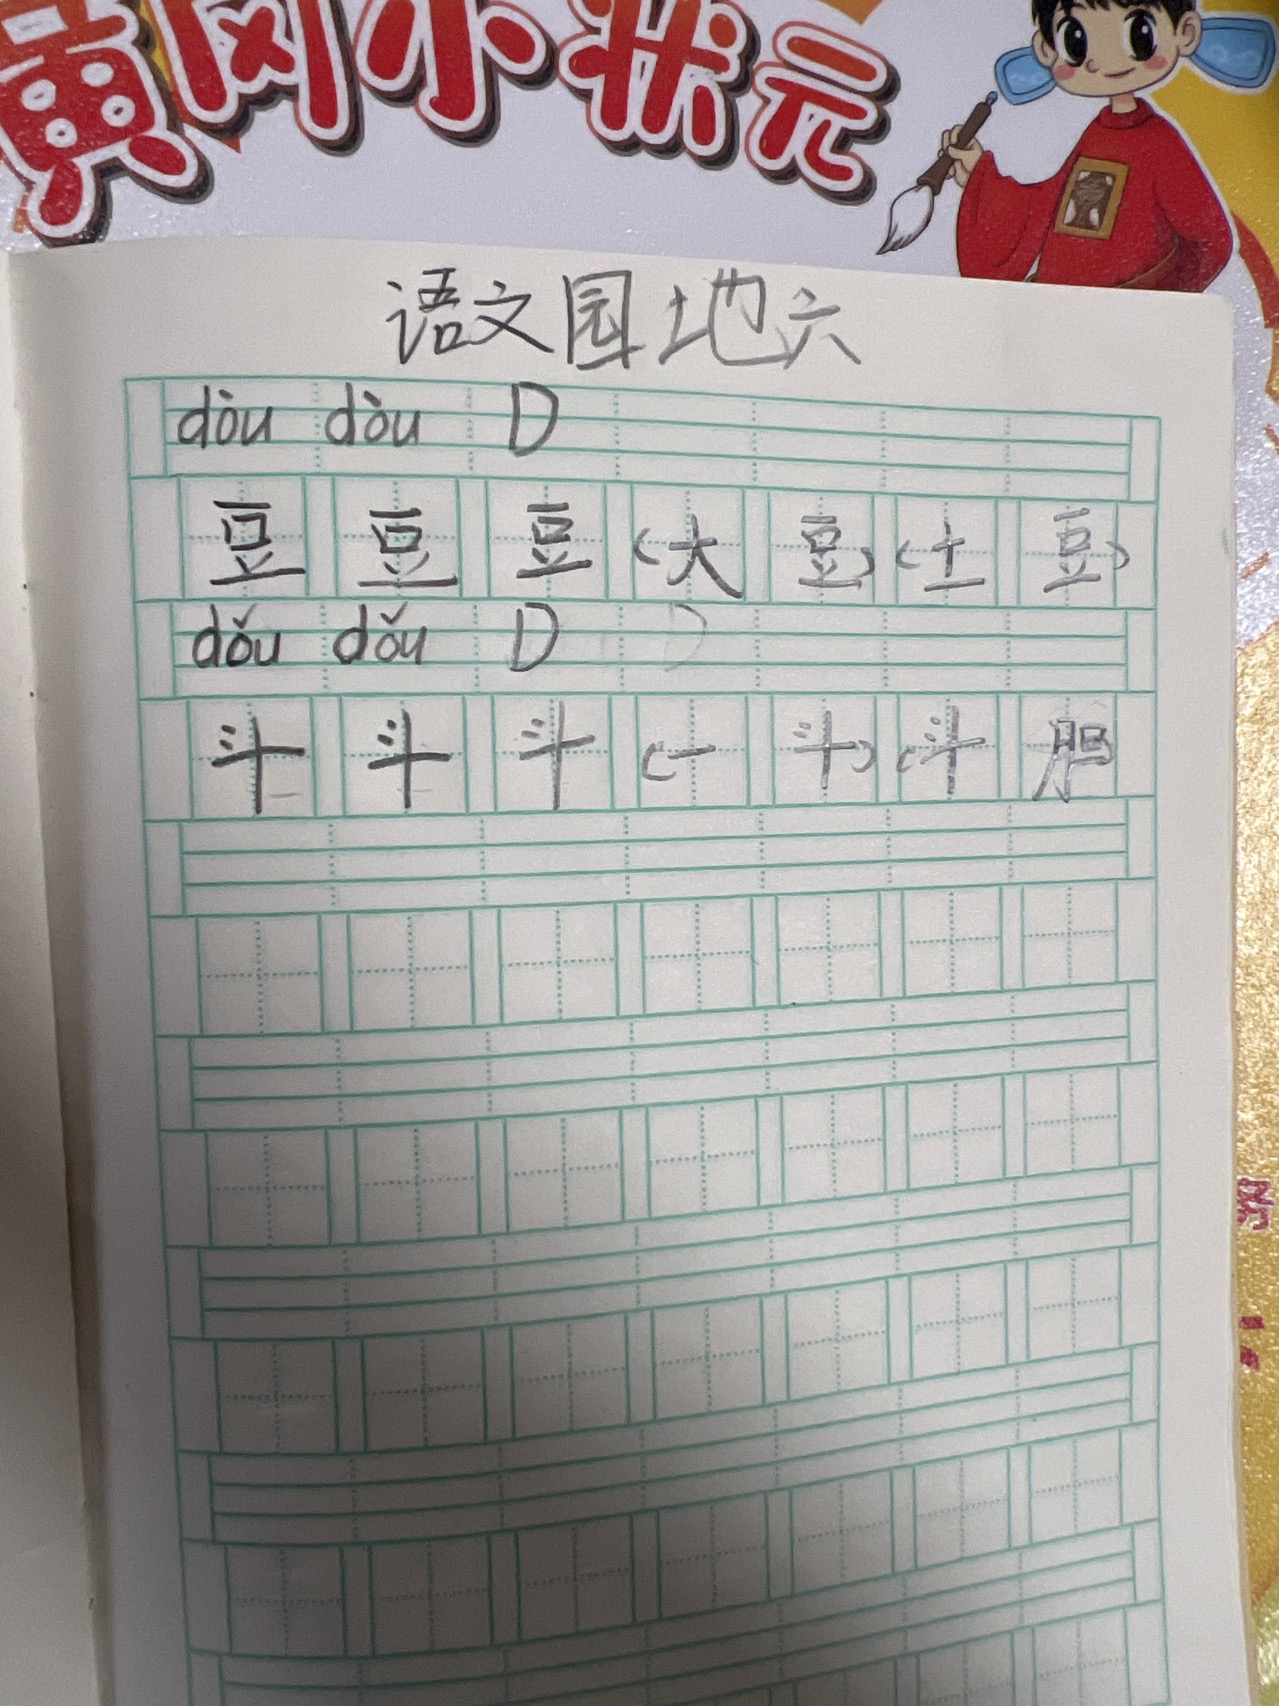 黄冈小状元
语文园地六
dòu dòu D
豆 豆 豆 (大 豆) (土 豆)
dǒu dǒu D
斗 斗 斗 (一 斗) (斗 胆